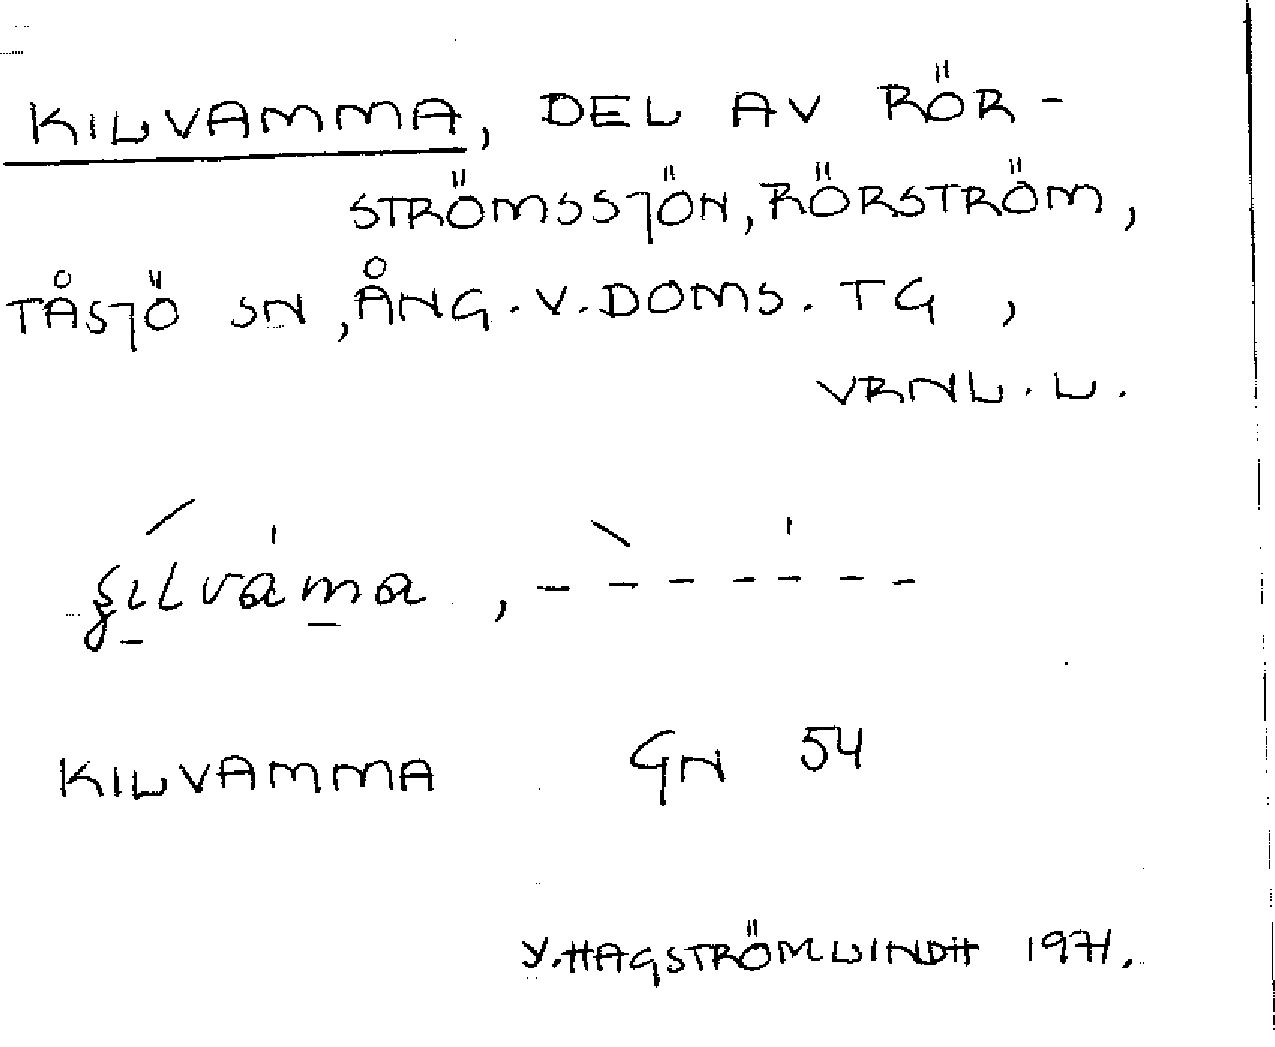 KILVAMMA, DEL AV RÖR-
STRÖMSSJÖN, RÖRSTRÖM,
TÅSJÖ SN, ÅNG. V. DOMS. TG,
VRNL. L.
KILVAMMA GN 54
Y. HAGSTRÖM LINDH 1971.